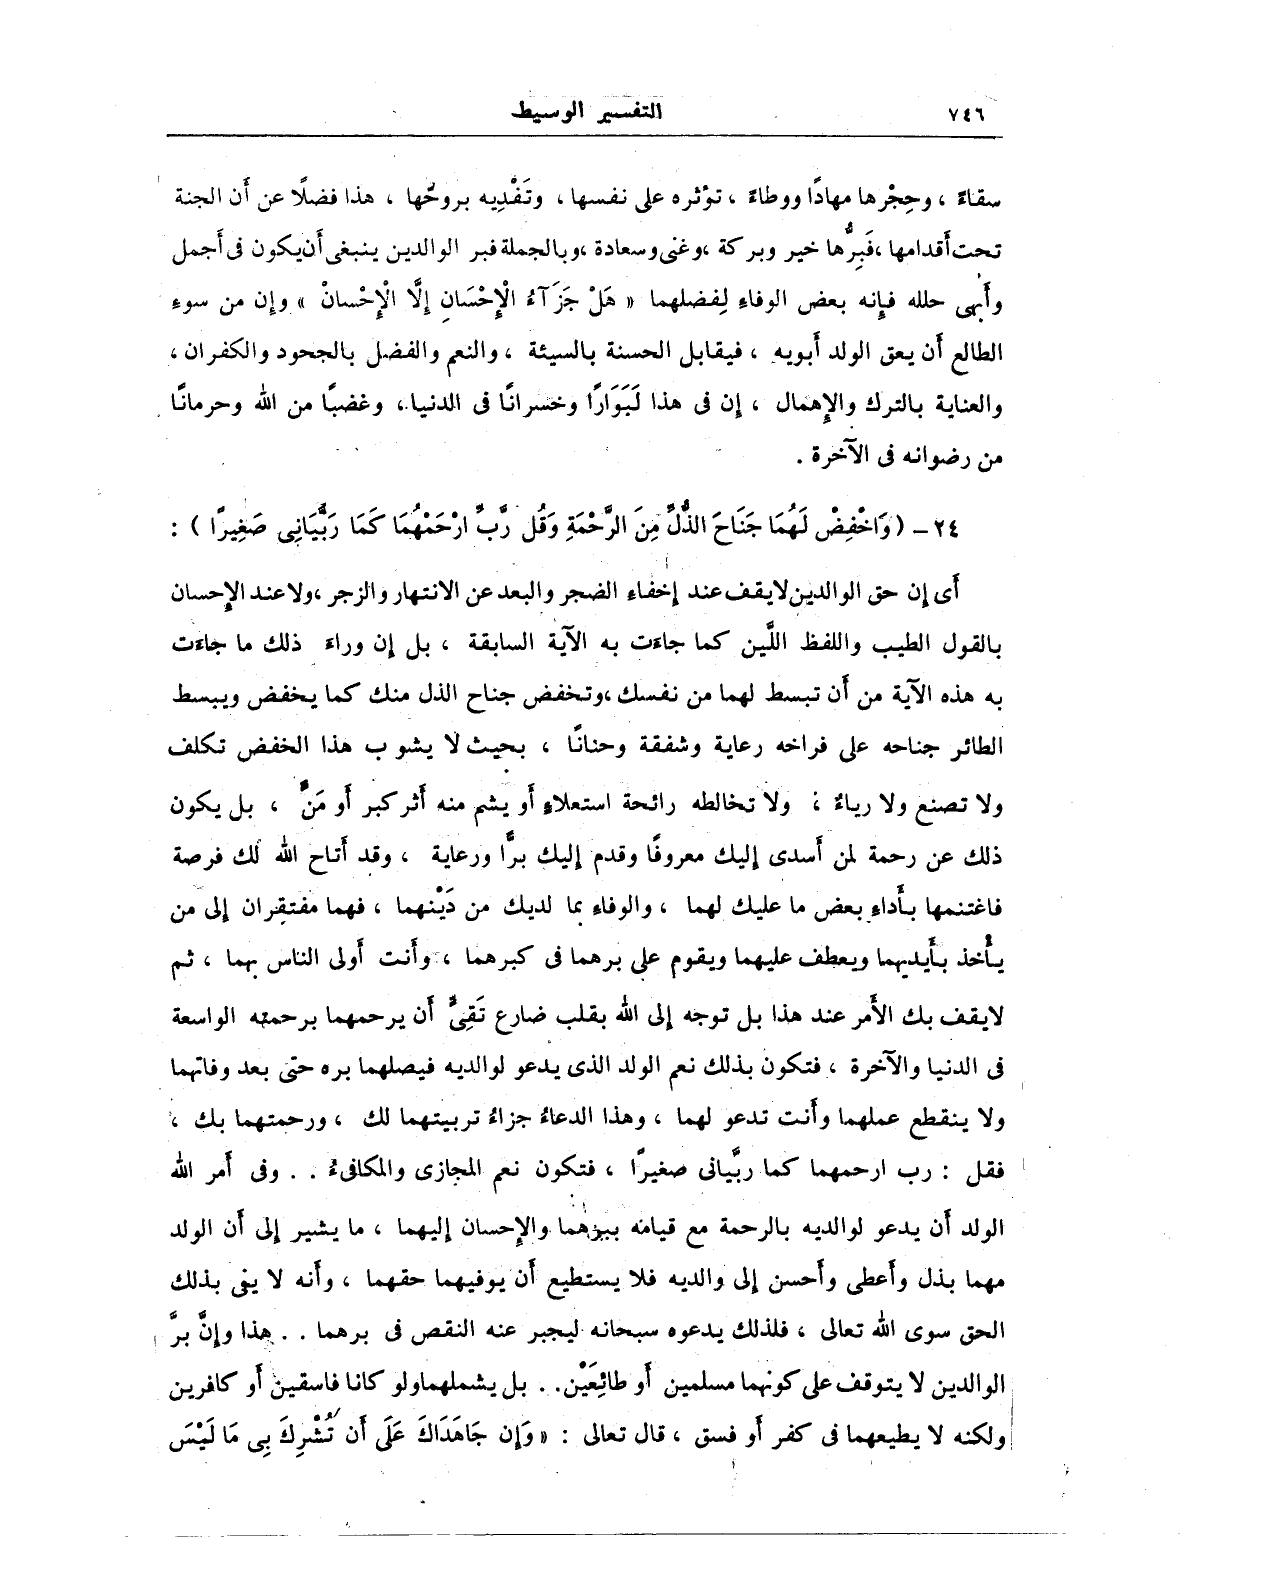 ٧٤٦
التفسير الوسيط
سقاءً ، وحِجْرها مهادًا ووطاءً ، تؤثره على نفسها ، وتَفْدِيه بروحها ، هذا فضلًا عن أن الجنة
تحت أقدامها ، فَبِرُّها خير وبركة ، وغنى وسعادة ، وبالجملة فبر الوالدين ينبغى أن يكون فى أجمل
وأبهى حلله فإنه بعض الوفاءِ لِفضلهما « هَلْ جَزَآءُ الْإِحْسَانِ إِلَّا الْإِحْسانُ » وإن من سوءِ
الطالع أن يعق الولد أبويه ، فيقابل الحسنة بالسيئة ، والنعم والفضل بالجحود والكفران ،
والعناية بالترك والإِهمال ، إن فى هذا لَبَوَارًا وخسرانًا فى الدنيا ، وغضبًا من الله وحرمانًا
من رضوانه فى الآخرة .
٢٤ – ( وَاخْفِضْ لَهُمَا جَنَاحَ الذُّلِّ مِنَ الرَّحْمَةِ وَقُل رَّبِّ ارْحَمْهُمَا كَمَا رَبَّيَانِى صَغِيرًا ) :
أى إن حق الوالدين لا يقف عند إخفاءِ الضجر والبعد عن الانتهار والزجر ، ولا عند الإِحسان
بالقول الطيب واللفظ اللَّين كما جاءَت به الآية السابقة ، بل إن وراءَ ذلك ما جاءَت
به هذه الآية من أن تبسط لهما من نفسك ، وتخفض جناح الذل منك كما يخفض ويبسط
الطائر جناحه على فراخه رعاية وشفقة وحنانًا ، بحيث لا يشوب هذا الخفض تكلف
ولا تصنع ولا رياءٌ ، ولا تخالطه رائحة استعلاءٍ أو يشم منه أثر كبر أو مَنٍّ ، بل يكون
ذلك عن رحمة لمن أسدى إليك معروفًا وقدم إليك برًّا ورعاية ، وقد أتاح الله لك فرصة
فاغتنمها بأداءِ بعض ما عليك لهما ، والوفاءِ بما لديك من دَيْنهما ، فهما مفتقران إلى من
يأخذ بأيديهما ويعطف عليهما ويقوم على برهما فى كبرهما ، وأنت أولى الناس بهما ، ثم
لا يقف بك الأمر عند هذا بل توجه إلى الله بقلب ضارع تَقِىٍّ أن يرحمهما برحمته الواسعة
فى الدنيا والآخرة ، فتكون بذلك نعم الولد الذى يدعو لوالديه فيصلهما بره حتى بعد وفاتهما
ولا ينقطع عملهما وأنت تدعو لهما ، وهذا الدعاءُ جزاءُ تربيتهما لك ، ورحمتهما بك ،
فقل : رب ارحمهما كما ربَّيانى صغيرًا ، فتكون نعم المجازى والمكافىءُ . . وفى أمر الله
الولد أن يدعو لوالديه بالرحمة مع قيامه ببرهما والإِحسان إليهما ، ما يشير إلى أن الولد
مهما بذل وأعطى وأحسن إلى والديه فلا يستطيع أن يوفيهما حقهما ، وأنه لا يفى بذلك
الحق سوى الله تعالى ، فلذلك يدعوه سبحانه ليجبر عنه النقص فى برهما . . هذا وإنَّ برَّ
الوالدين لا يتوقف على كونهما مسلمين أو طائِعَيْن . . بل يشملهما ولو كانا فاسقين أو كافرين
ولكنه لا يطيعهما فى كفر أو فسق ، قال تعالى : « وَإِن جَاهَدَاكَ عَلَى أَن تُشْرِكَ بِى مَا لَيْسَ